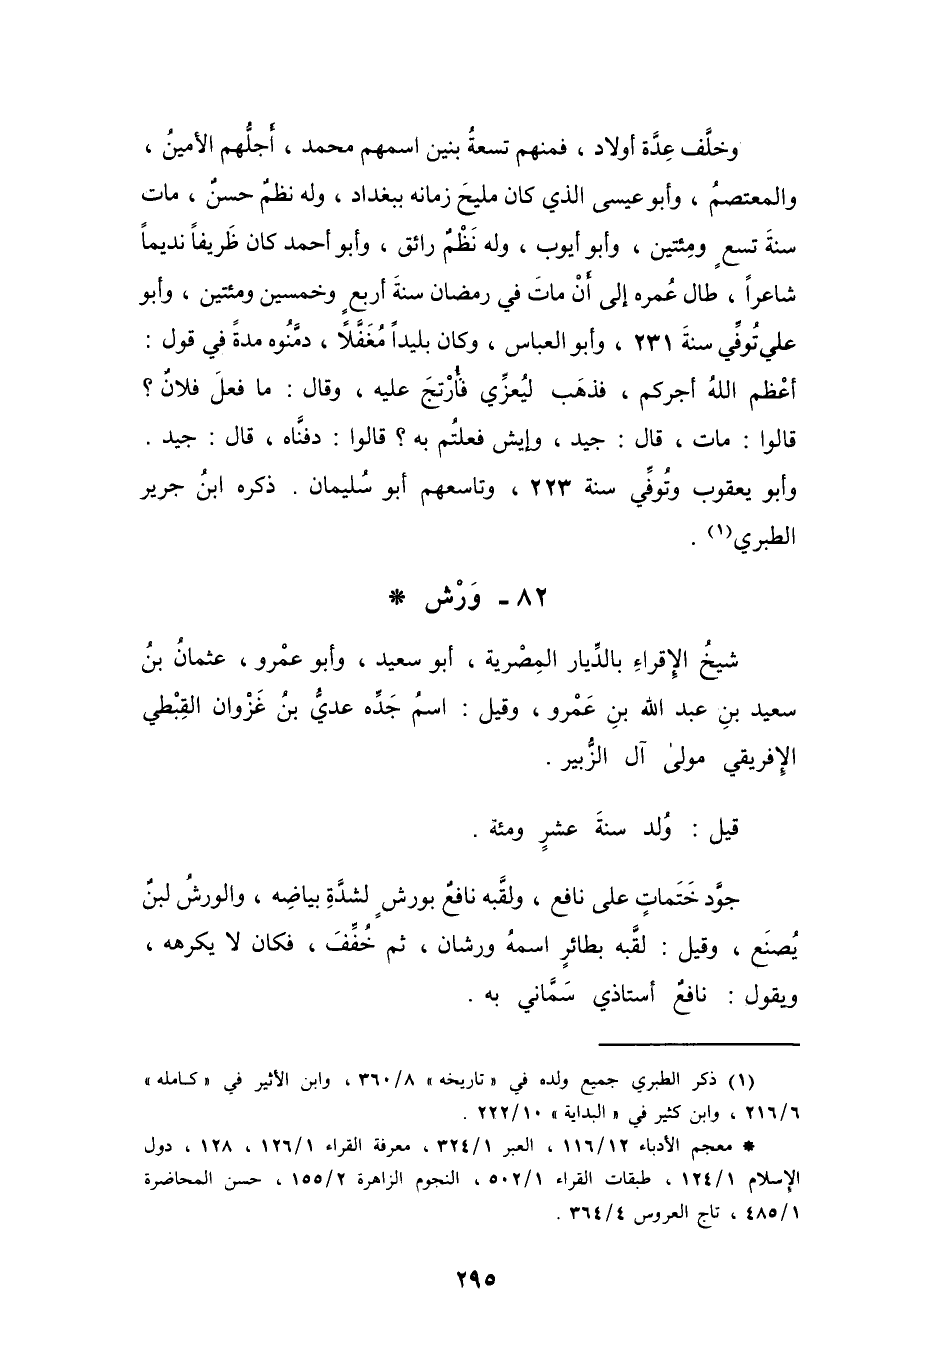 وخلَّف عِدَّة أولاد ، فمنهم تسعةُ بنين اسمهم محمد ، أَجلُّهم الأمينُ ،
والمعتصمُ ، وأبو عيسى الذي كان مليحَ زمانه ببغداد ، وله نظمٌ حسنٌ ، مات
سنةَ تسعٍ ومِئتين ، وأبو أيوب ، وله نَظْمٌ رائق ، وأبو أحمد كان ظَريفاً نديماً
شاعراً ، طال عُمره إلى أَنْ ماتَ في رمضان سنةَ أربعٍ وخمسين ومئتين ، وأبو
علي تُوفِّي سنةَ ٢٣١ ، وأبو العباس ، وكان بليداً مُغَفَّلاً ، دمَّنُوه مدةً في قول :
أعْظم اللهُ أجركم ، فذهَب ليُعزِّي فأُرْتجَ عليه ، وقال : ما فعلَ فلانٌ ؟
قالوا : مات ، قال : جيد ، وإيش فعلتُم به ؟ قالوا : دفنَّاه ، قال : جيد .
وأبو يعقوب وتُوفِّي سنة ٢٢٣ ، وتاسعهم أبو سُليمان . ذكره ابنُ جرير
الطبري(١) .
٨٢ - وَرْش *
شيخُ الإِقراءِ بالدِّيار المِصْرية ، أبو سعيد ، وأبو عمْرو ، عثمانُ بنُ
سعيد بنِ عبد الله بنِ عَمْرو ، وقيل : اسمُ جَدِّه عديُّ بنُ غَزْوان القِبْطي
الإِفريقي مولىٰ آل الزُّبير .
قيل : وُلد سنةَ عشرٍ ومئة .
جوَّد خَتَماتٍ على نافع ، ولقَّبه نافعٌ بورشٍ لشدَّةِ بياضِه ، والورشُ لبنٌ
يُصنَع ، وقيل : لقَّبه بطائرٍ اسمهُ ورشان ، ثم خُفِّفَ ، فكان لا يكرهه ،
ويقول : نافعٌ أستاذي سَمَّاني به .
(١) ذكر الطبري جميع ولده في « تاريخه » ٣٦٠/٨ ، وابن الأثير في « كـامله »
٢١٦/٦ ، وابن كثير في « البداية » ٢٢٢/١٠ .
* معجم الأدباء ١١٦/١٢ ، العبر ٣٢٤/١ ، معرفة القراء ١٢٦/١ ، ١٢٨ ، دول
الإِسلام ١٢٤/١ ، طبقات القراء ٥٠٢/١ ، النجوم الزاهرة ١٥٥/٢ ، حسن المحاضرة
٤٨٥/١ ، تاج العروس ٣٦٤/٤ .
٢٩٥